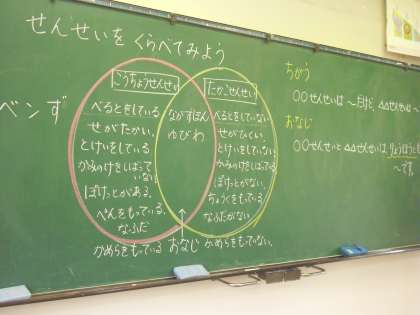 せんせいを くらべてみよう
ベンず
こうちょうせんせい
べるとをしている
せがたかい。
とけいをしている
かみのけをしばっていない
ぽけっとがある。
ぺんをもっている。
なふだ
かめらをもっている
ながずぼん
ゆびわ
おなじ
たかごせんせい
べるとをしていない
せがひくい。
とけいをしていない
かみのけをしばっている
ぽけっとがない。
ちょーくをもっている
なふだがない
かめらをもっていない。
ちがう
〇〇せんせいは 〜だけど、△△せんせいは
おなじ
〇〇せんせいと △△せんせいは、りょうほうとも
〜です。